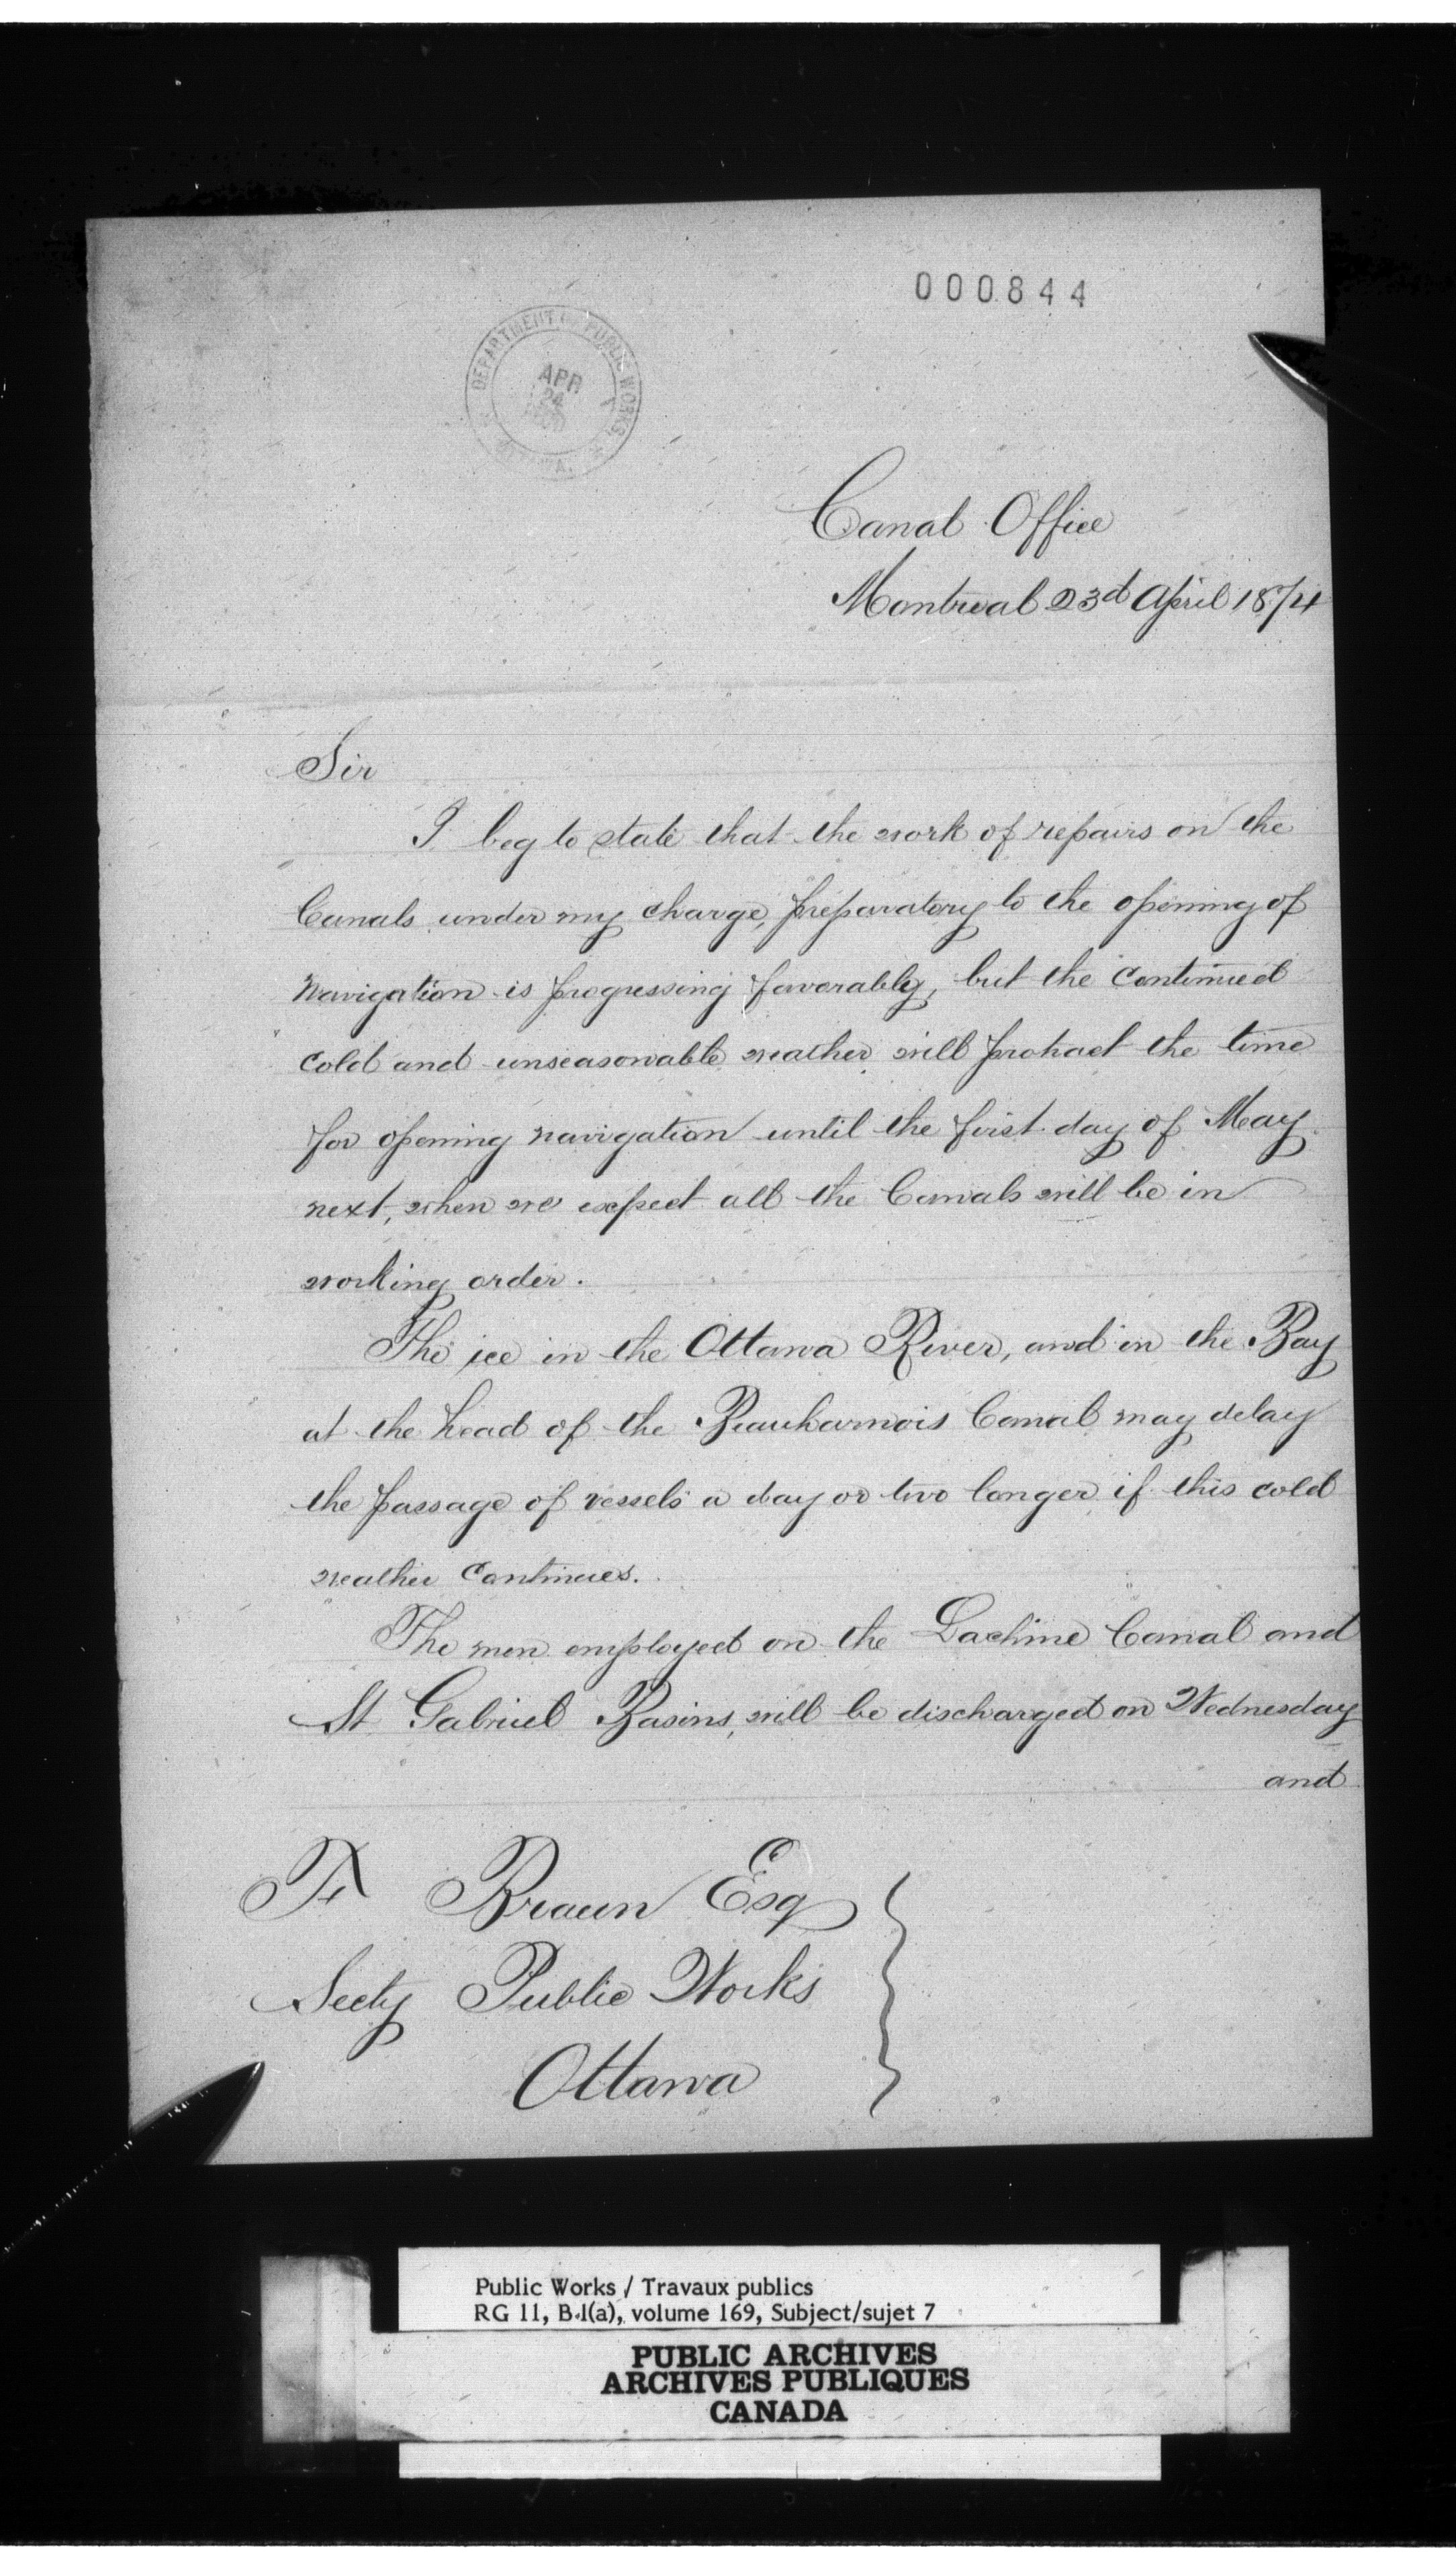 000844
DEPARTMENT PUBLIC WORKS
APR
24
Canal Office
Montreal 23d April 1874
Sir
I beg to state that the work of repairs on the
Canals under my charge, preparatory to the opening of
navigation is progressing favorably, but the continued
cold and unseasonable weather will protract the time
for opening navigation until the first day of May
next, when we expect all the Canals will be in
working order.
The ice in the Ottawa River, and in the Bay
at the head of the Beauharnois Canal may delay
the passage of vessels a day or two longer if this cold
weather continues.
The men employed on the Lachine Canal and
St Gabriel Basins, will be discharged on Wednesday
and
Braun Esq
Secty Public Works
Ottawa
Public Works / Travaux publics
RG 11, B.1(a), volume 169, Subject/sujet 7
PUBLIC ARCHIVES
ARCHIVES PUBLIQUES
CANADA